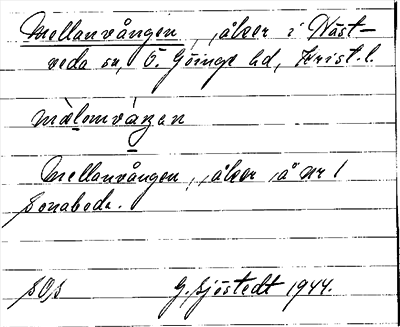 Mellanvången, åker i Näst-
veda sn, Ö. Göinge hd, Krist. l.
mèlomváŋan
Mellanvången, åker å nr 1
Sonaboda.
SOs G. Sjöstedt 1944.